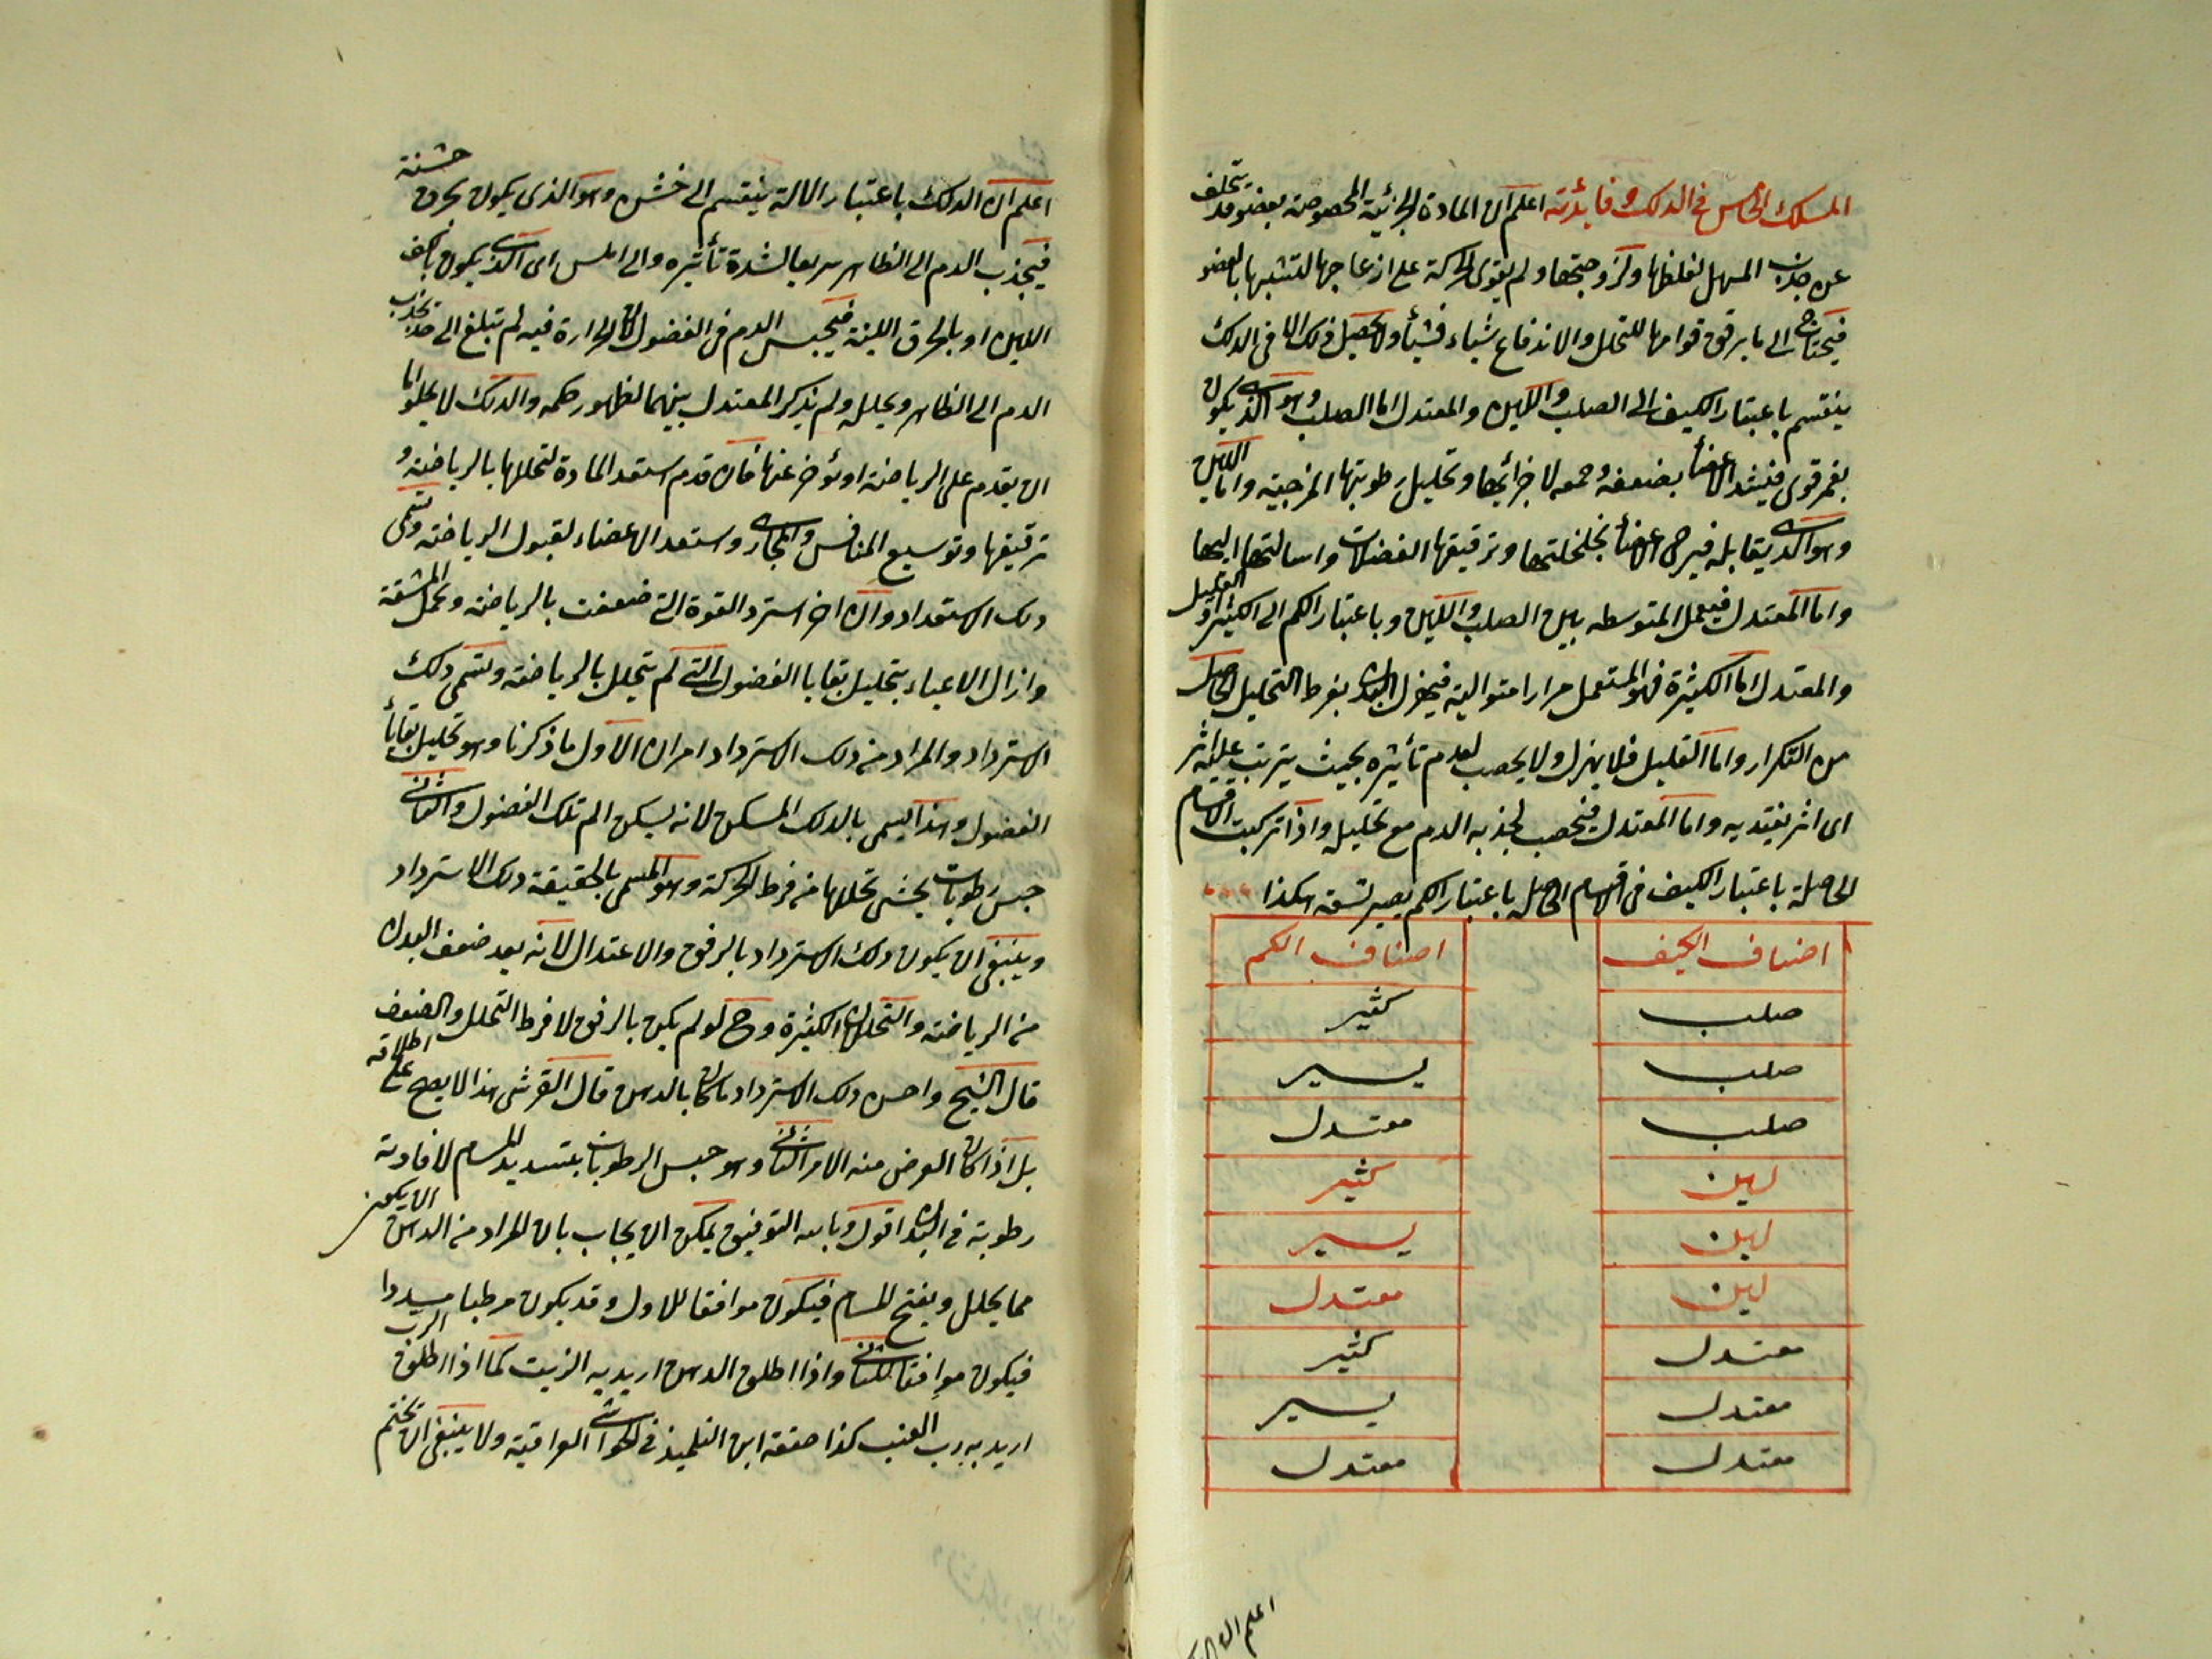 المسلك الخامس في الدلك وفايدته اعلم ان المادة الجزئية المخصوصة بعضو قد يتخلف
عن جذب المسهل لغلظها ولزوجتها ولم يقوى الحركة على ازعاجها لتشبثها بالعضو
فيحتاج الى ما يرقق قوامها للتحلل والاندفاع شياء فشيأ ولا يحصيل ذلك الا في الدلك
ينقسم باعتبار الكيف الى الصلب واللين والمعتدل اما الصلب وهو الذي يكون
بغمز قوى فيشد الاعضأ بضغطه وجمعه لاجزائها وتحليل رطوبتها المرخية واما اللين
وهو الذي يقابله فيرخى الاعضأ بخلخلتها وترقيقها الفضلات واسالتها اليها
واما المعتدل فيعمل المتوسطه بين الصلب واللين وباعتبار الكم الى الكثير والقليل
والمعتدل اما الكثيرة فهو المستعمل مرارا متوالية فيهزل البدن بفرط التحليل الحاصل
من التكرار واما القليل فلا يهزل ولا يخصب لعدم تأثيره بحيث يترتب عليه اثر
اى اثر يعتد به واما المعتدل فيخصب لجذبه الدم مع تحليله واذا تركبت الاقسام
الحاصلة باعتبار الكيف في الاقسام الحاصلة باعتبار الكم يصير تسعة هكذا
اصناف الكيف اصناف الكم
صلب كثير
صلب يسير
صلب معتدل
لين كثير
لين يسير
لين معتدل
معتدل كثير
معتدل يسير
معتدل معتدل
اعلم ان
اعلم ان الدلك باعتبار الالة ينقسم الى خشن وهو الذى يكون بخرق خشنة
فيجذب الدم الى الظاهر سريعا لشدة تأثيره والى املس اى الذي يكون بالكف
اللين او بالخرق اللينة فيحبس الدم في العضو لان الحرارة فيه لم تبلغ الى حد تجذب
الدم الى الظاهر ويحلله ولم يذكر المعتدل بينهما لظهور حكمه والدلك لا يخلو اما
ان يقدم على الرياضة او يؤخر عنها فان قدم استعد المادة لتحللها بالرياضة و
ترقيقها وتوسيع المنافس والمجارى واستعد الاعضاء لقبول الرياضة وتسمى
دلك الاستعداد وان اخر استرد القوة التى ضعفت بالرياضة وتحمل المشقة
وازال الاعياء بتحليل بقايا الفضول التى لم يتحلل بالرياضة وتسمى دلك
الاسترداد والمراد من دلك الاسترداد امران الاول ما ذكرنا وهو تحليل بقايأ
الفضول وهذا يسمى بالدلك المسكن لانه يسكن الم تلك الفضول والثانى
حبس رطوبات يخشى تحللها من فرط الحركة وهو المسمى بالحقيقة دلك الاسترداد
وينبغى ان يكون دلك الاسترداد بالرفق والاعتدال لانه بعد ضعف البدن
من الرياضة والتحللات الكثيرة وح لو لم يكن بالرفق لافرط التحلل والضعف
قال الشيخ واحسن دلك الاسترداد ما كان بالدهن قال القرشى هذا لا يصح على اطلاقه
بل اذا كان الغرض منه الامر الثانى وهو حبس الرطوبات بتسديد المسام لافادته
رطوبة في البدن اقول وبالله التوفيق يمكن ان يجاب بان المراد من الدهن الا يكون
مما يحلل ويفتح المسام فيكون موافقا للاول وقد يكون مرطبا مسددا
فيكون موافقا للثانى واذا اطلق الدهن اريد به الزيت كما اذا اطلق الرب
اريد به رب العنب كذا حققه ابن التلميذ في الحواشي العراقية ولا ينبغى ان يختم